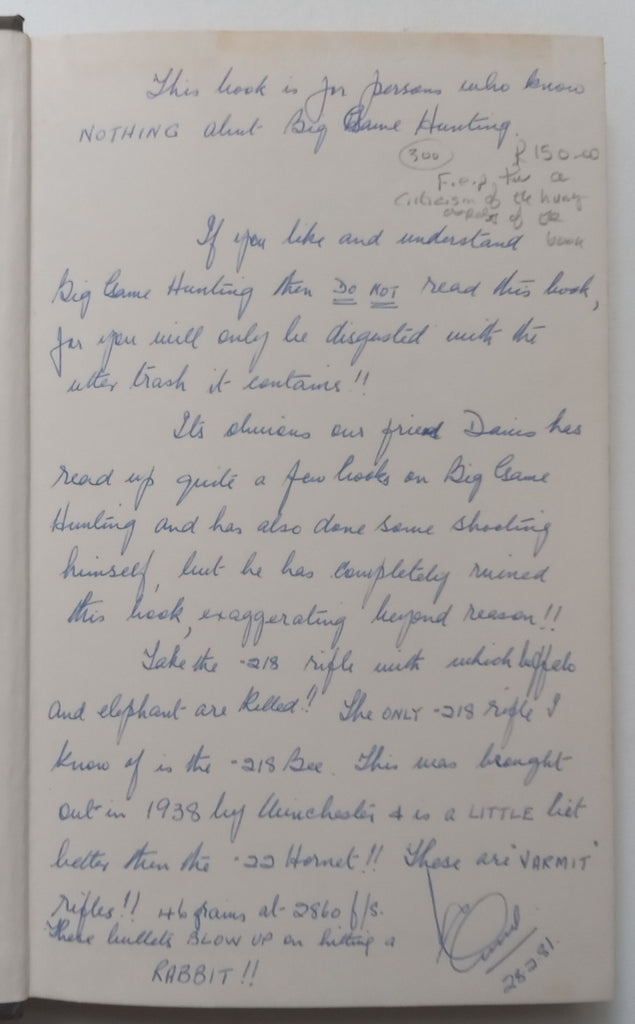 This book is for persons who know
NOTHING about Big Game Hunting.
300 R150-00
F.e.p. has a
criticism of the hunting
aspects of the
book
If you like and understand
Big Game Hunting then DO NOT read this book,
for you will only be disgusted with the
utter trash it contains!!
Its obvious our friend Davis has
read up quite a few books on Big Game
Hunting and has also done some shooting
himself, but he has completely ruined
this book, exaggerating beyond reason!!
Take the .218 rifle with which buffalo
and elephant are killed!! The ONLY .218 rifle I
know of is the .218 Bee. This was brought
out in 1938 by Winchester & is a LITTLE bit
better then the .22 Hornet!! These are 'VARMIT'
rifles!! 46 grains at 2860 f/s.
These bullets BLOW UP on hitting a
RABBIT!!
28.2.81.